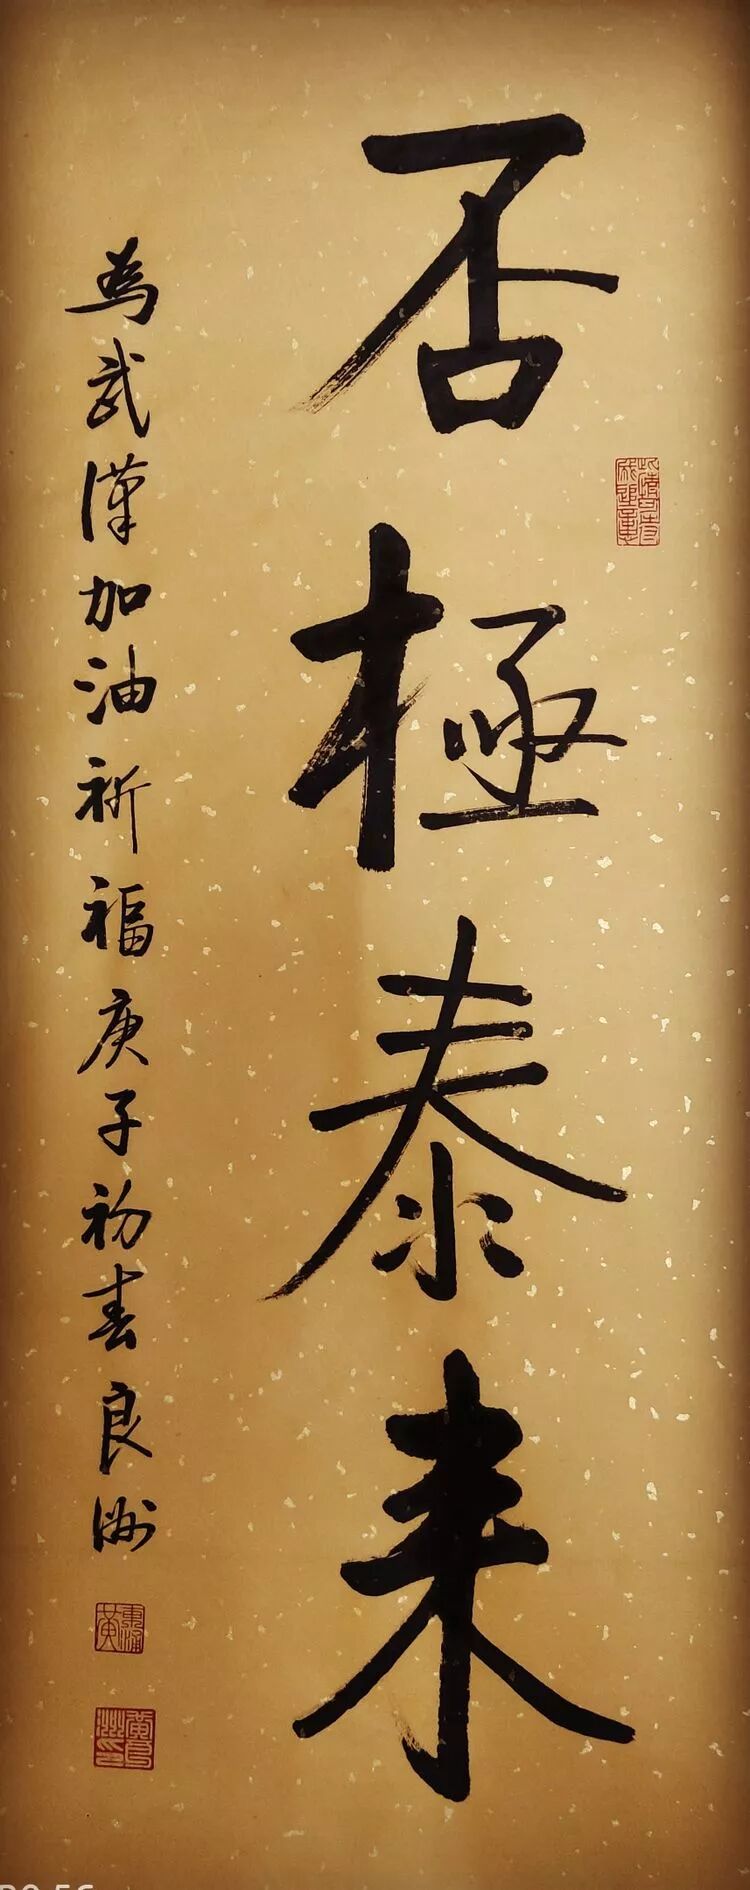 否極泰来
為武漢加油祈福庚子初春良洲